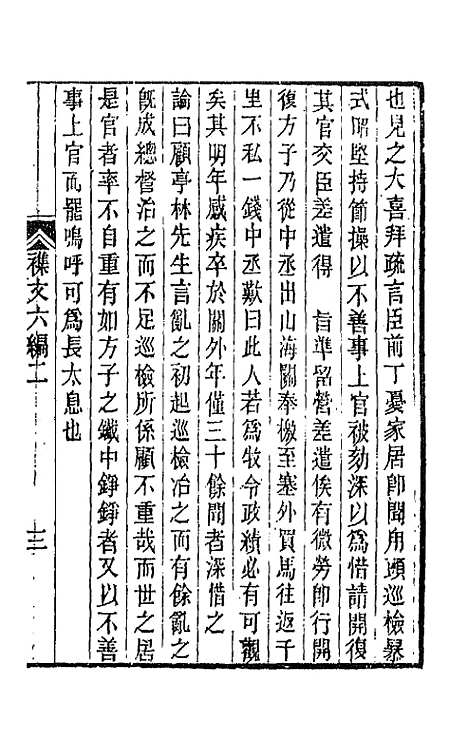 也見之大喜拜疏言臣前丁憂家居卽聞甪頭巡檢暴
式昭堅持節操以不善事上官被劾深以爲惜請開復
其官交臣差遣得　旨準留營差遣俟有微勞卽行開
復方子乃從中丞出山海關奉檄至塞外買馬往返千
里不私一錢中丞歎曰此人若爲牧令政績必有可觀
矣其明年感疾卒於關外年僅三十餘聞者深惜之
論曰顧亭林先生言亂之初起巡檢治之而有餘亂之
旣成總督治之而不足巡檢所係顧不重哉而世之居
是官者率不自重有如方子之鐵中錚錚者又以不善
事上官而罷嗚呼可爲長太息也
襍文六編二
十二